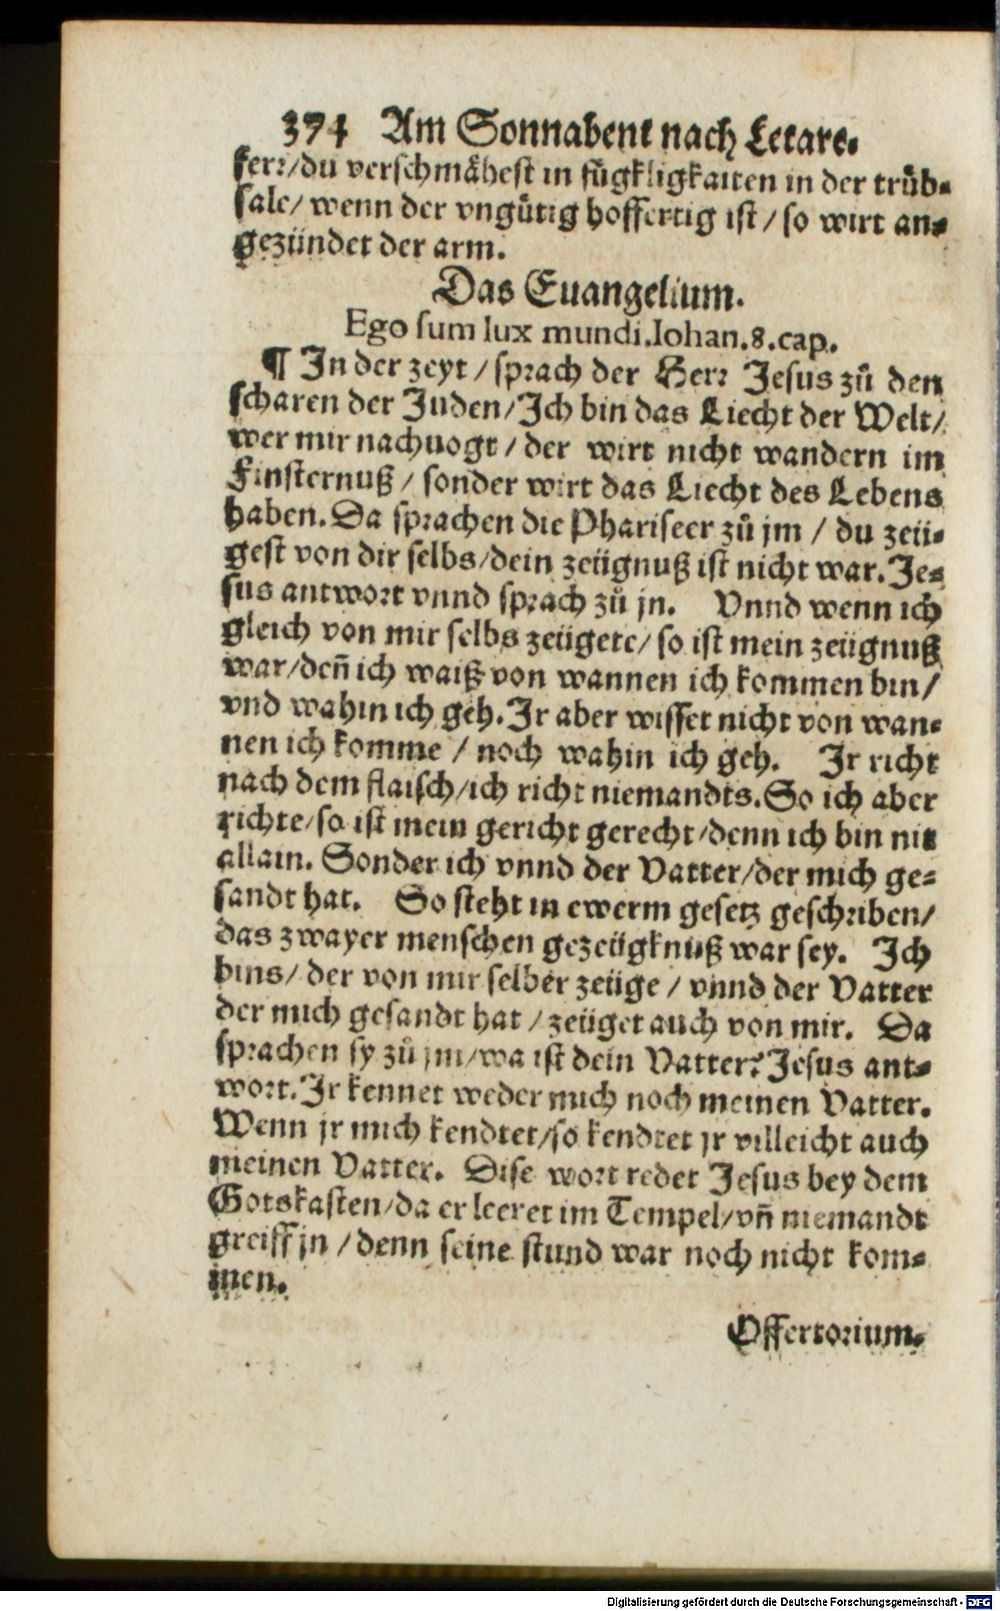 374 Am Sonnabent nach Letare.
ker/du verschmähest in fůgkligkaiten in der trůb-
sale/ wenn der vngůtig hoffertig ist/so wirt an-
gezündet der arm.
Das Euangelium.
Ego sum lux mundi.Iohan.8.cap.
¶ In der zeyt/sprach der Herr Jesus zů den
scharen der Juden/Ich bin das Liecht der Welt/
wer mir nachuogt/der wirt nicht wandern im
Finsternuß/ sonder wirt das Liecht des Lebens
haben.Da sprachen die Phariseer zů jm / du zeü-
gest von dir selbs/dein zeügnuß ist nicht war.Je-
sus antwort vnnd sprach zů jn. Vnnd wenn ich
gleich von mir selbs zeügete/so ist mein zeügnuß
war/deñ ich waiß von wannen ich kommen bin/
vnd wahin ich geh.Ir aber wisset nicht von wan-
nen ich komme / noch wahin ich geh. Ir richt
nach dem flaisch/ich richt niemandts.So ich aber
richte/so ist mein gericht gerecht/denn ich bin nit
allain. Sonder ich vnnd der Vatter/der mich ge-
sandt hat. So steht in ewerm gesetz geschriben/
das zwayer menschen gezeügknuß war sey. Ich
bins/ der von mir selber zeüge / vnnd der Vatter
der mich gesandt hat/zeüget auch von mir. Da
sprachen sy zů jm/wa ist dein Vatter? Jesus ant-
wort.Ir kennet weder mich noch meinen Vatter.
Wenn jr mich kendtet/so kendtet jr villeicht auch
meinen Vatter. Dise wort redet Jesus bey dem
Gotskasten/da er leeret im Tempel/vñ niemandt
greiff jn / denn seine stund war noch nicht kom-
men.
Offertorium.
Digitalisierung gefördert durch die Deutsche Forschungsgemeinschaft - DFG